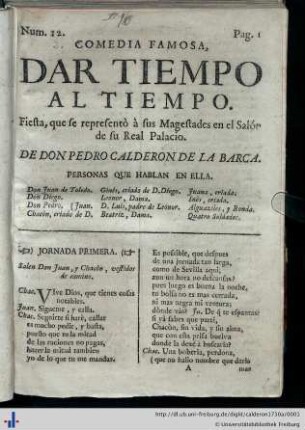 Num. 12.
Pag. 1
COMEDIA FAMOSA,
DAR TIEMPO
AL TIEMPO.
Fiesta, que se representò à sus Magestades en el Salòn
de su Real Palacio.
DE DON PEDRO CALDERON DE LA BARCA.
PERSONAS QUE HABLAN EN ELLA.
Don Juan de Toledo. Ginès, criado de D. Diego. Juana, criada.
Don Diego. Leonor, Dama. Inès, criada.
Don Pedro, Juan. D. Luis, padre de Leonor. Alguaciles, y Ronda.
Chacòn, criado de D. Beatriz, Dama. Quatro Soldados.
JORNADA PRIMERA.
Salen Don Juan, y Chacòn, vestidos
de camino.
Chac. Vive Dios, que tienes cosas
notables.
Juan. Sigueme, y calla.
Chac. Seguirte si harè, callar
es mucho pedir, y basta,
puesto que en la mitad
de las raciones no pagas,
hacer la mitad tambien
yo de lo que tu me mandas.
Es possible, que despues
de una jornada tan larga,
como de Sevilla aqui,
aun no hora no descansas?
pues luego es buena la noche,
tu bolsa no es mas cerrada,
ni mas negra mi ventura;
dònde vàs? Ju. De què te espantas?
si yà sabes que fui,
Chacòn, sin vida, y sin alma,
que con esta prisa buelva
donde la dexè à buscarla?
Chac. Una boberia, perdona,
(que no hallo nombre que darla
A
mas
http://dl.ub.uni-freiburg.de/diglit/calderon1730a/0001
© Universitätsbibliothek Freiburg